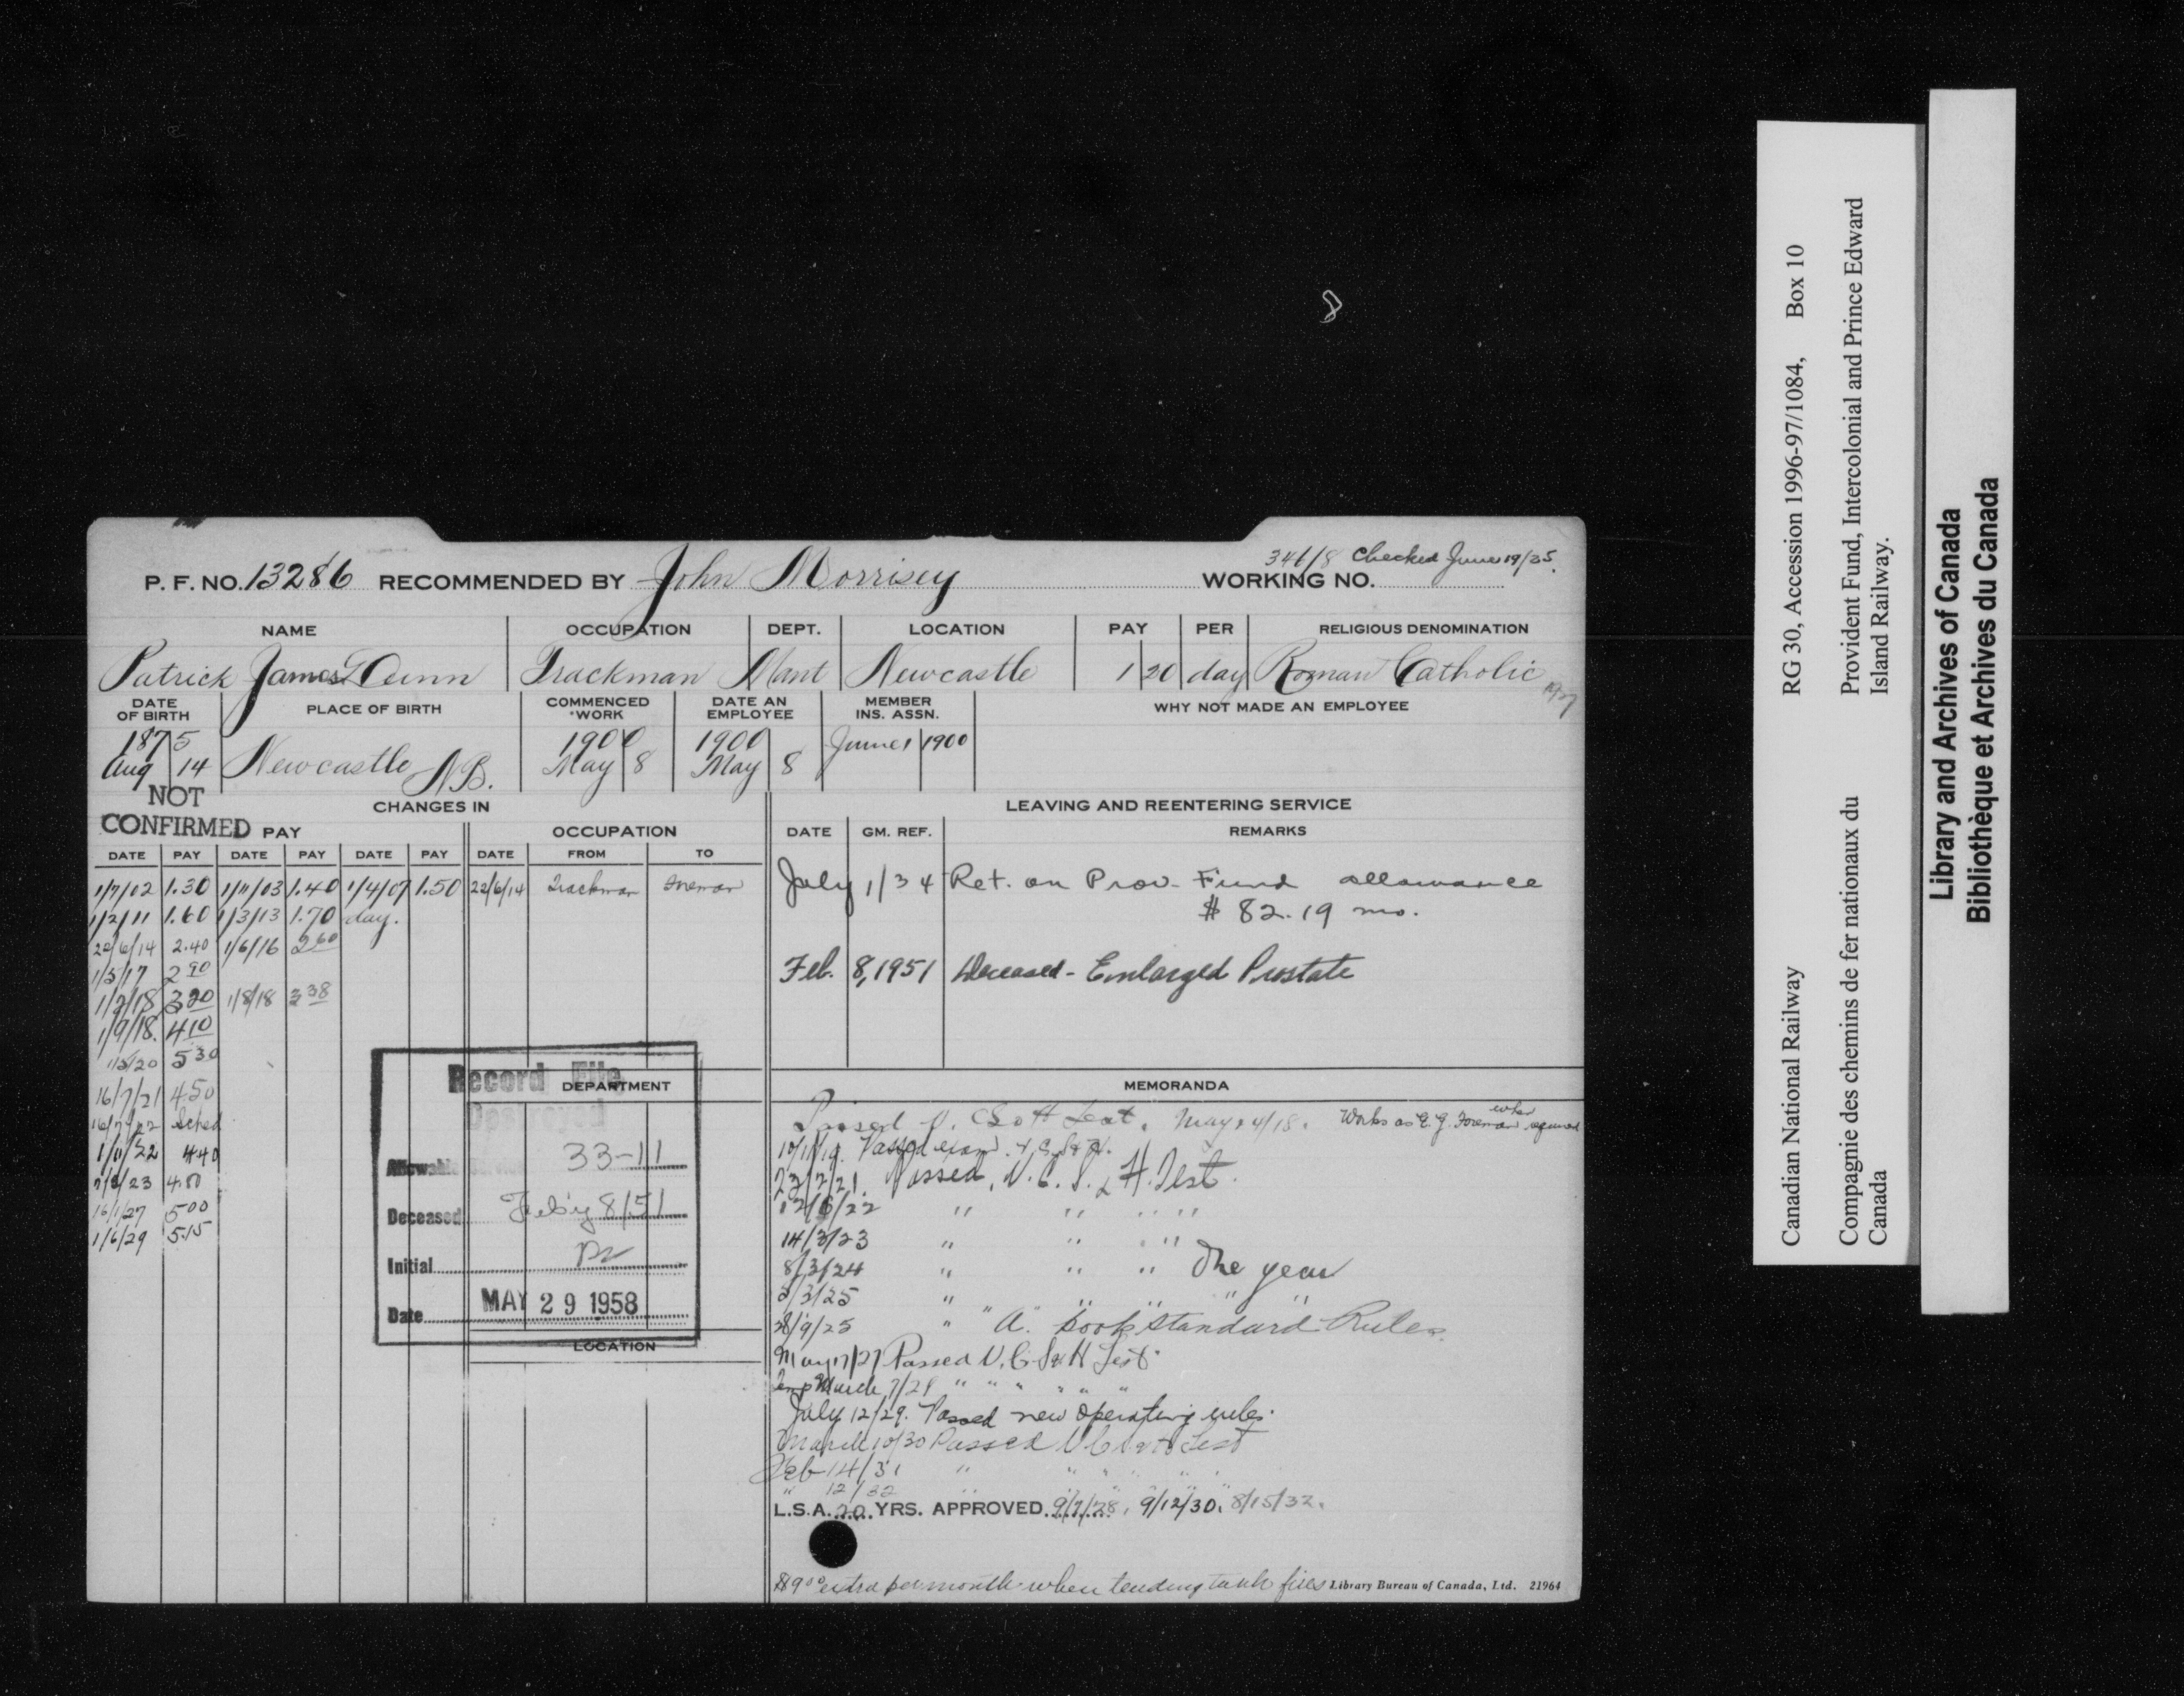 8
346/8 Checked June 19/35.
P. F. NO. 13286 RECOMMENDED BY John Morrisey WORKING NO.
NAME OCCUPATION DEPT. LOCATION PAY PER RELIGIOUS DENOMINATION
Patrick James Dunn Trackman Mant Newcastle 1 20 day Roman Catholic
DATE OF BIRTH PLACE OF BIRTH COMMENCED WORK DATE AN EMPLOYEE MEMBER INS. ASSN. WHY NOT MADE AN EMPLOYEE
1875 1900 1900 June 1 1900
Aug 14 Newcastle N.B. May 8 May 8
NOT
CONFIRMED
CHANGES IN LEAVING AND REENTERING SERVICE
PAY OCCUPATION DATE GM. REF. REMARKS
DATE PAY DATE PAY DATE PAY DATE FROM TO
1/7/02 1.30 1/11/03 1.40 1/4/07 1.50 22/6/14 Trackman Foreman
1/2/11 1.60 1/3/13 1.70 day.
22/6/14 2.40 1/6/16 2 60
1/5/17 2 90
1/2/18 3 20 1/8/18 3 38
1/9/18. 4 10
1/5/20 5 30
16/7/21 4.50
16/7/22 Sched
1/11/22 4 40
4.50
16/1/27 5 00
1/6/29 5.15
July 1/34 Ret. on Prov. Fund allowance
$ 82.19 mo.
Feb. 8, 1951 Deceased - Enlarged Prostate
Record File
Destroyed
DEPARTMENT
Allowable Service 33-11
Deceased Feb'y 8/51
Initial
Date MAY 29 1958
LOCATION
MEMORANDA
Passed V. C S & H Test. May 24/18. Works as E. G. Foreman when required
10/11/19. Passed exam. V. C. S & H.
23/2/21. Passed, V. C. S. & H. Test.
12/6/22 " " " "
14/3/23 " " "
8/3/24 " " " One year
3/3/25 " " " " "
28/9/25 " "A" book Standard Rules.
May 17/27 Passed V. C. S & H Test.
March 7/28 " " " " " "
July 12/29. Passed new operating rules.
March 10/30 Passed V C S & H Test
Feb 14/31 " " " " " "
" 12/32 " " " " "
L.S.A. 20 YRS. APPROVED 9/7/28, 9/12/30, 8/15/32.
$9 00 extra per month when tending tank fires Library Bureau of Canada, Ltd. 21964
Canadian National Railway RG 30, Accession 1996-97/1084, Box 10
Compagnie des chemins de fer nationaux du Canada Provident Fund, Intercolonial and Prince Edward Island Railway.
Library and Archives of Canada
Bibliothèque et Archives du Canada